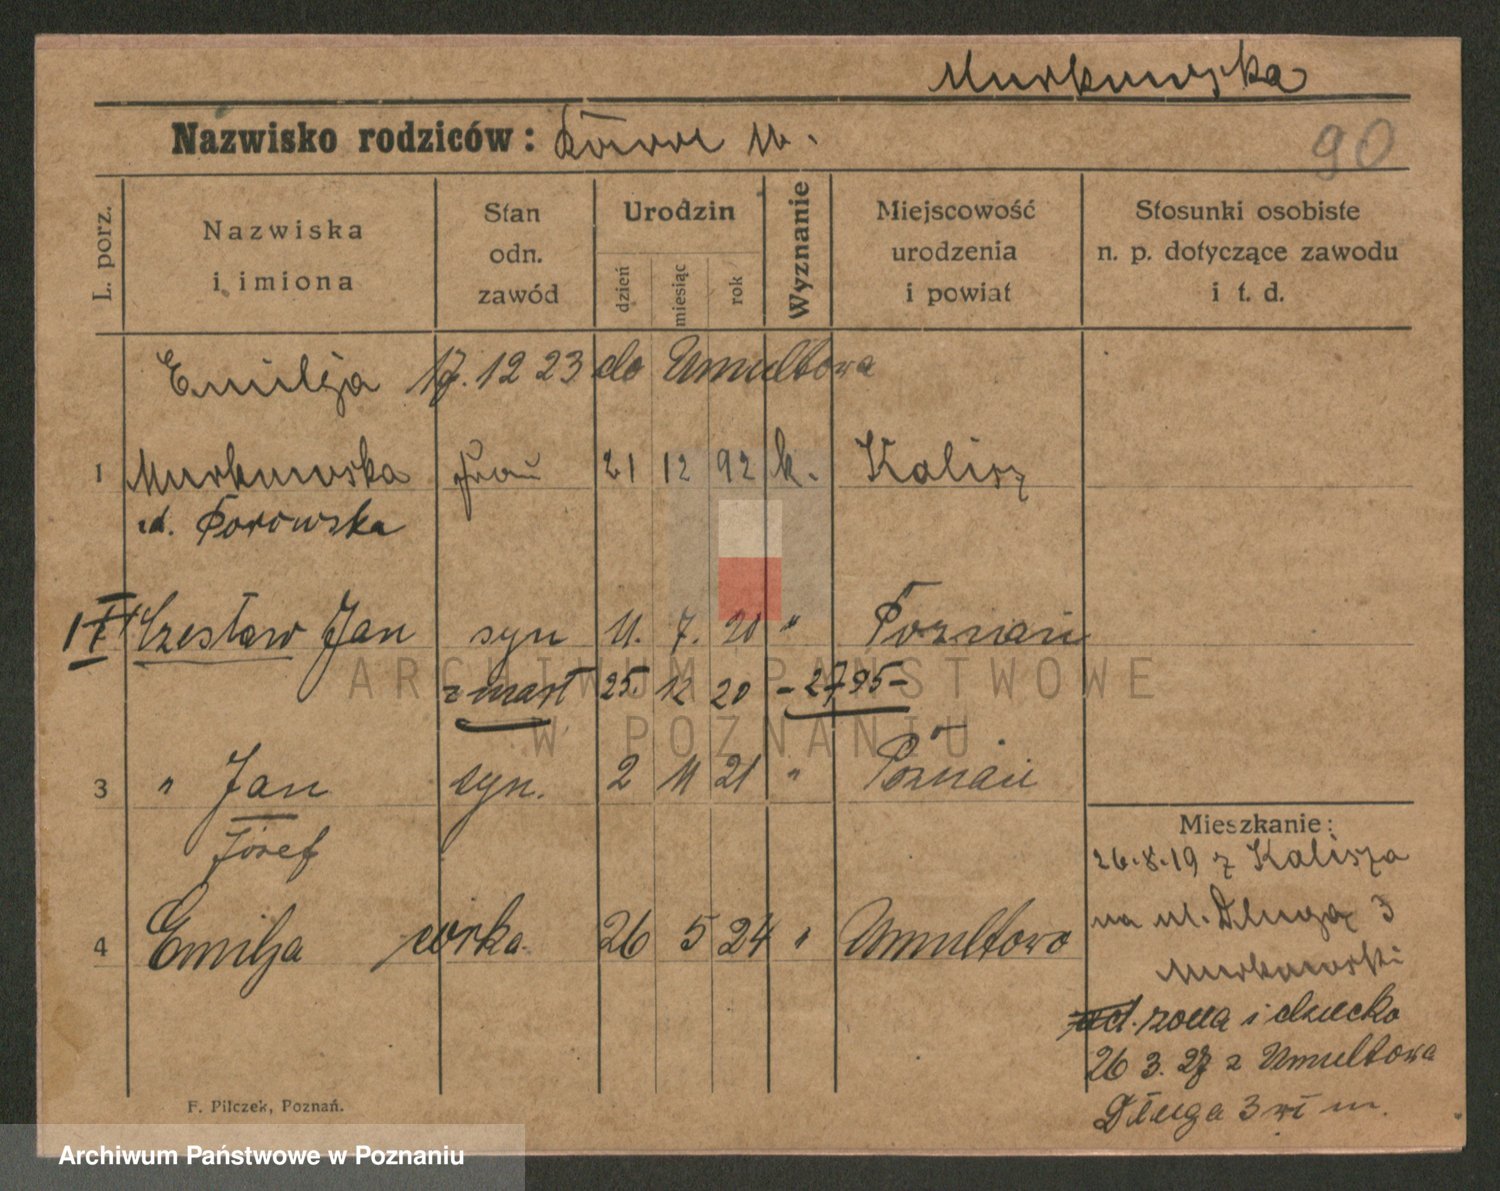 Murkowska
Nazwisko rodziców: M.
90
L. porz.
Nazwiska
i imiona
Stan
odn.
zawód
Urodzin
dzień
miesiąc
rok
Wyznanie
Miejscowość
urodzenia
i powiat
Stosunki osobiste
n. p. dotyczące zawodu
i t. d.
Emilja 17. 12 23 do Umultowa
1 Murkowska 21 12 92 k. Kalisz
Porowska
Czesław Jan syn 11. 7. 20 " Poznań
zmarł 25. 12 20 - 2795 -
3 " Jan syn. 2 11 21 " Poznań
Józef
4 Emilja córka 26 5 24 " Umultowo
Mieszkanie:
26.8.19 z Kalisza
na ul. Długą 3
Murkowski
żona i dziecko
26 3. 27 z Umultowa
Długa 3 m.
F. Pilczek, Poznań.
ARCHIWUM PAŃSTWOWE
W POZNANIU
Archiwum Państwowe w Poznaniu